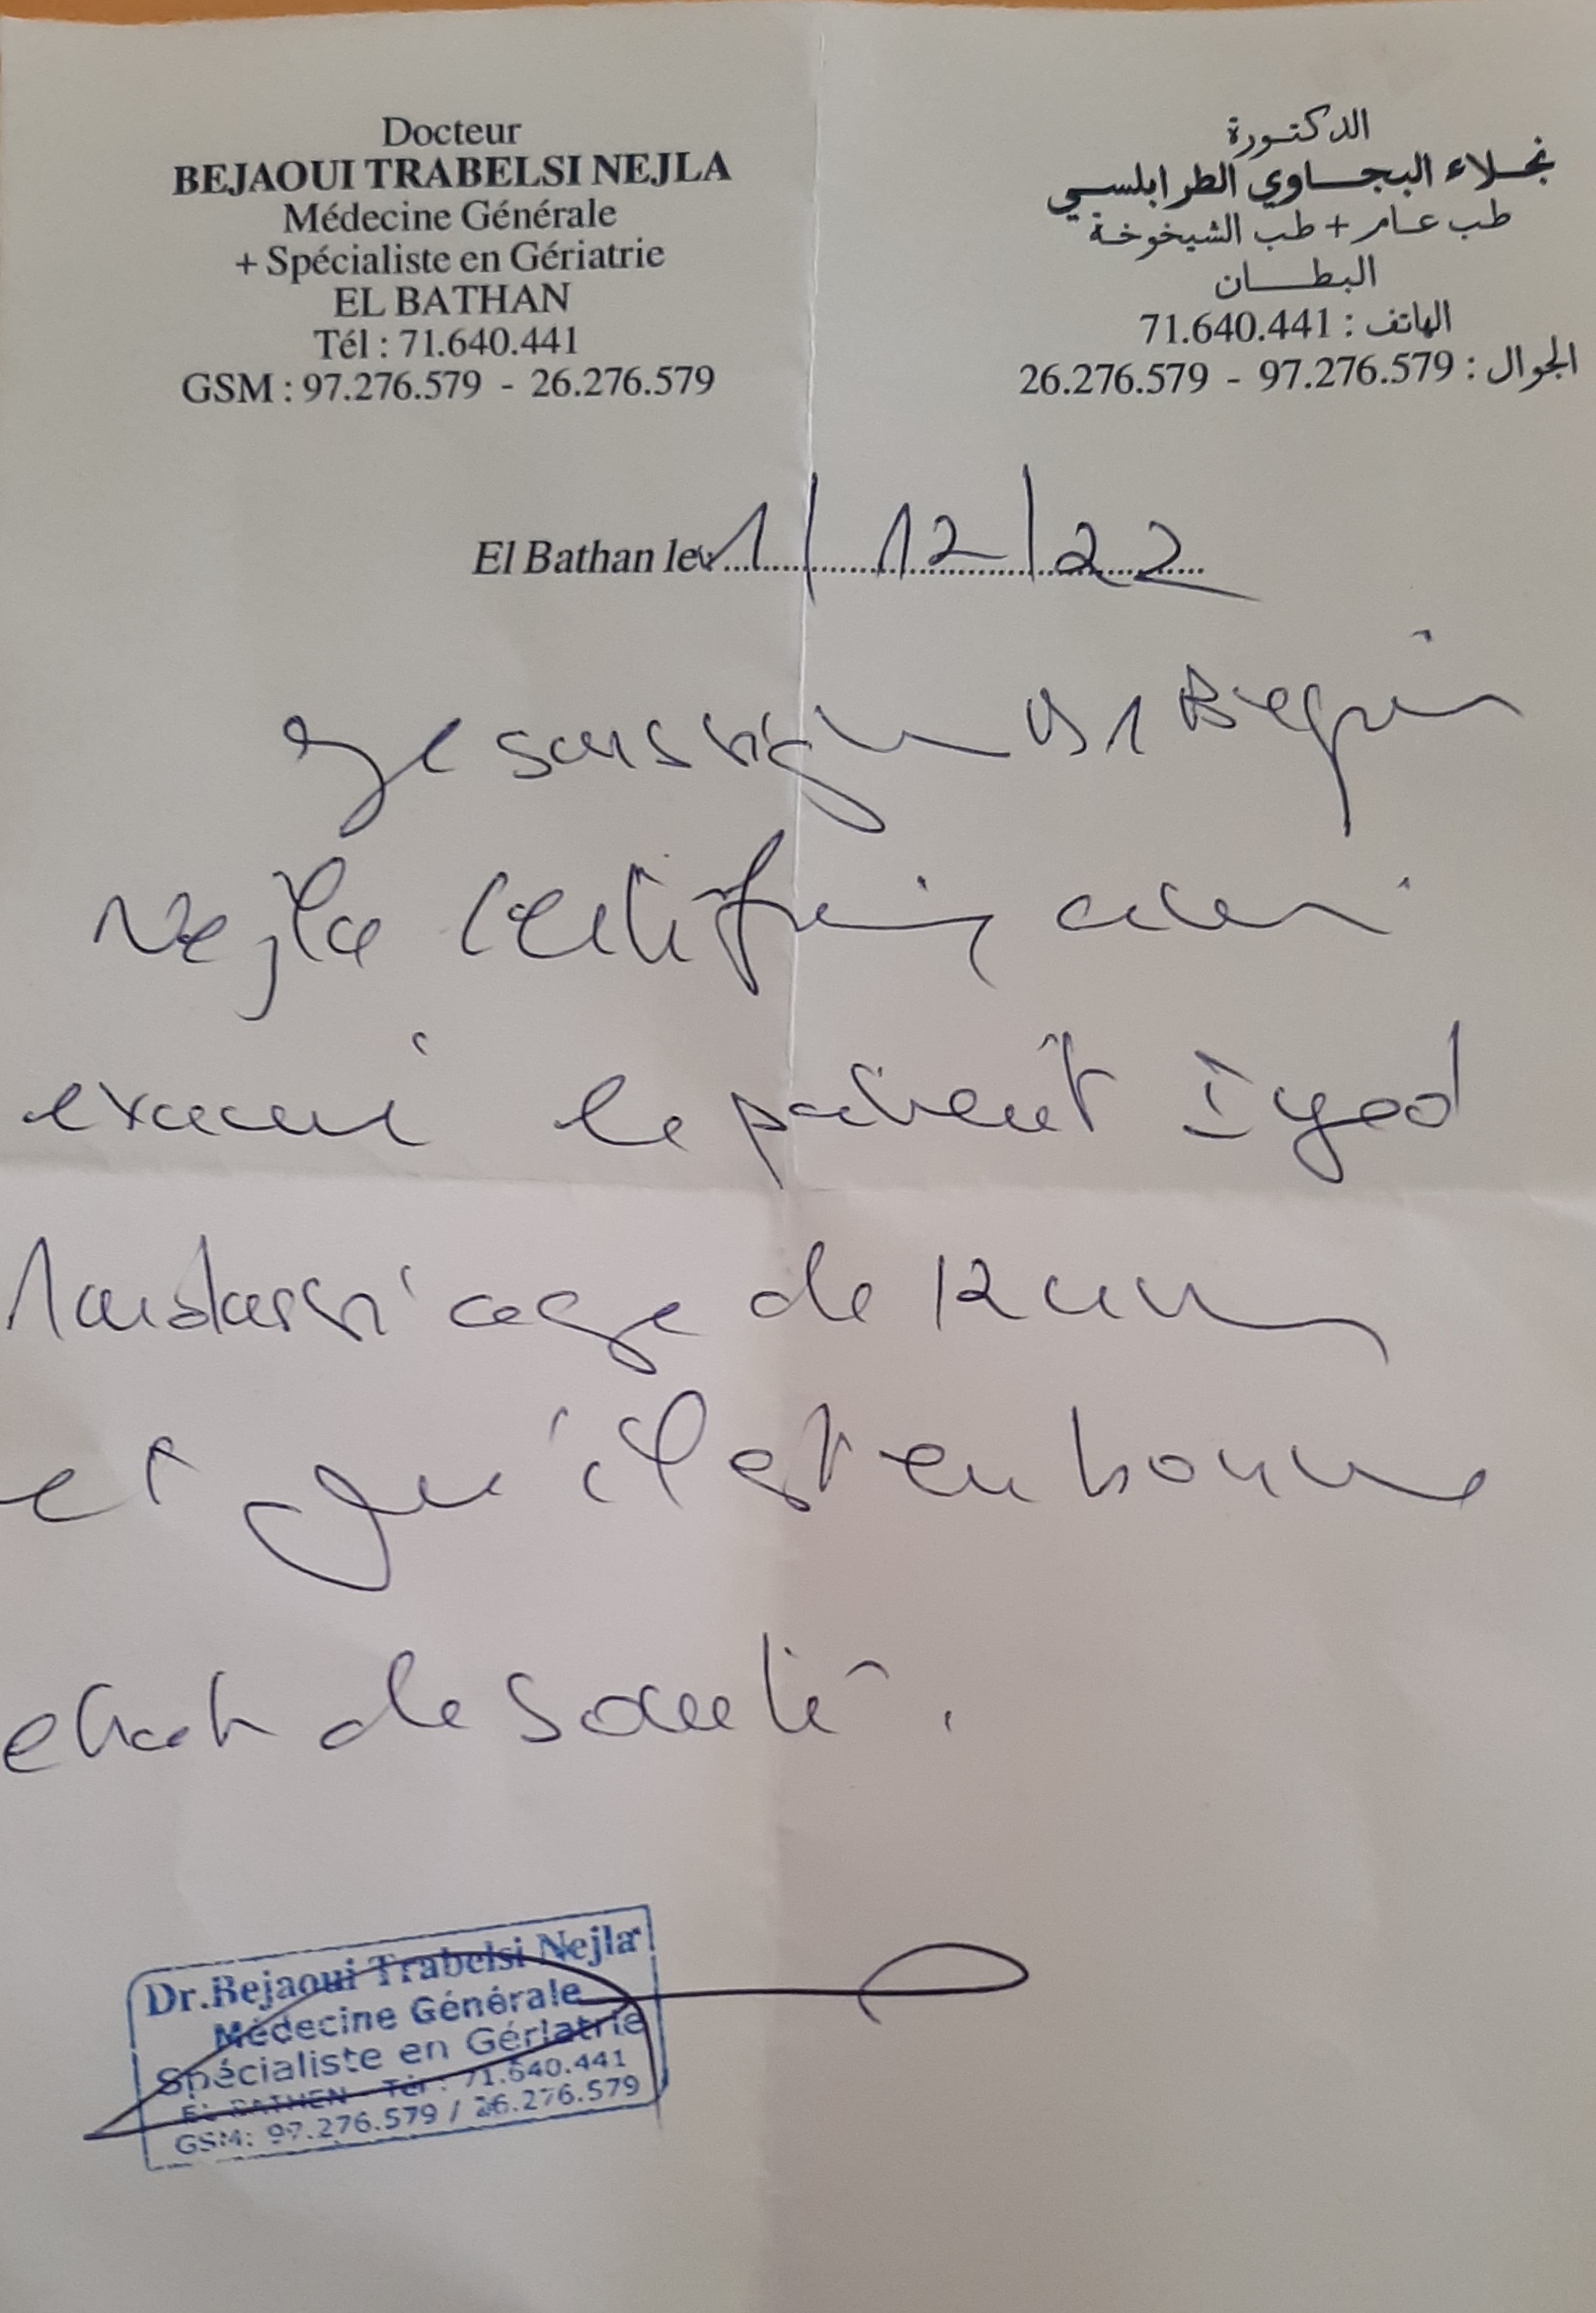 Docteur
BEJAOUI TRABELSI NEJLA
Médecine Générale
+ Spécialiste en Gériatrie
EL BATHAN
Tél : 71.640.441
GSM : 97.276.579 - 26.276.579
الدكتورة
نجلاء البجاوي الطرابلسي
طب عام + طب الشيخوخة
البطان
الهاتف : 71.640.441
الجوال : 97.276.579 - 26.276.579
El Bathan le 1/12/22
Je soussigne Dr
Nejla certifie avoir
examiné le patient Iyed
age de 12 ans
et qu'il est en bonne
etat de santé.
Dr.Bejaoui Trabelsi Nejla
Médecine Générale
Spécialiste en Gériatrie
EL BATHEN - Tél : 71.640.441
GSM: 97.276.579 / 26.276.579